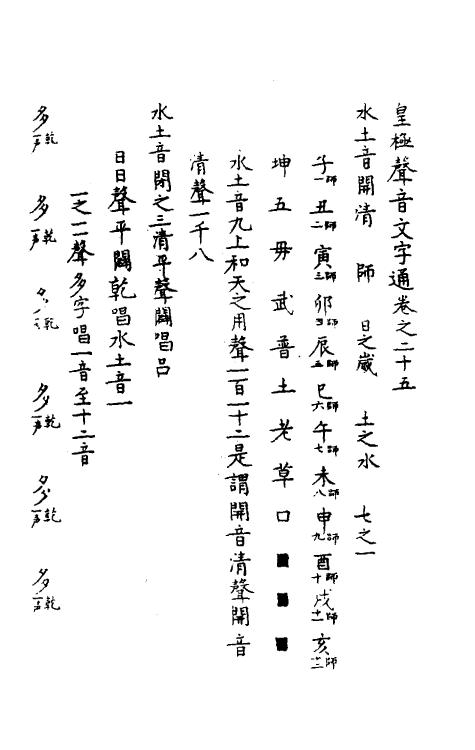 皇極聲音文字通卷之二十五
水土音開清　師　日之歲　土之水　七之一
子一師丑二師寅三師卯四師辰五師巳六師午七師未八師申九師酉十師戌十一師亥十二師
坤五母武普土老草口■■■
水土音九上和天之用聲一百一十二是謂開音清聲開音
清聲一千八
水土音閉之三清平聲闢唱呂
日日聲平闢乾唱水土音一
一之一聲多字唱一音至十二音
多一声乾　多一声乾　多一声乾　多一声乾　多一声乾　多一声乾